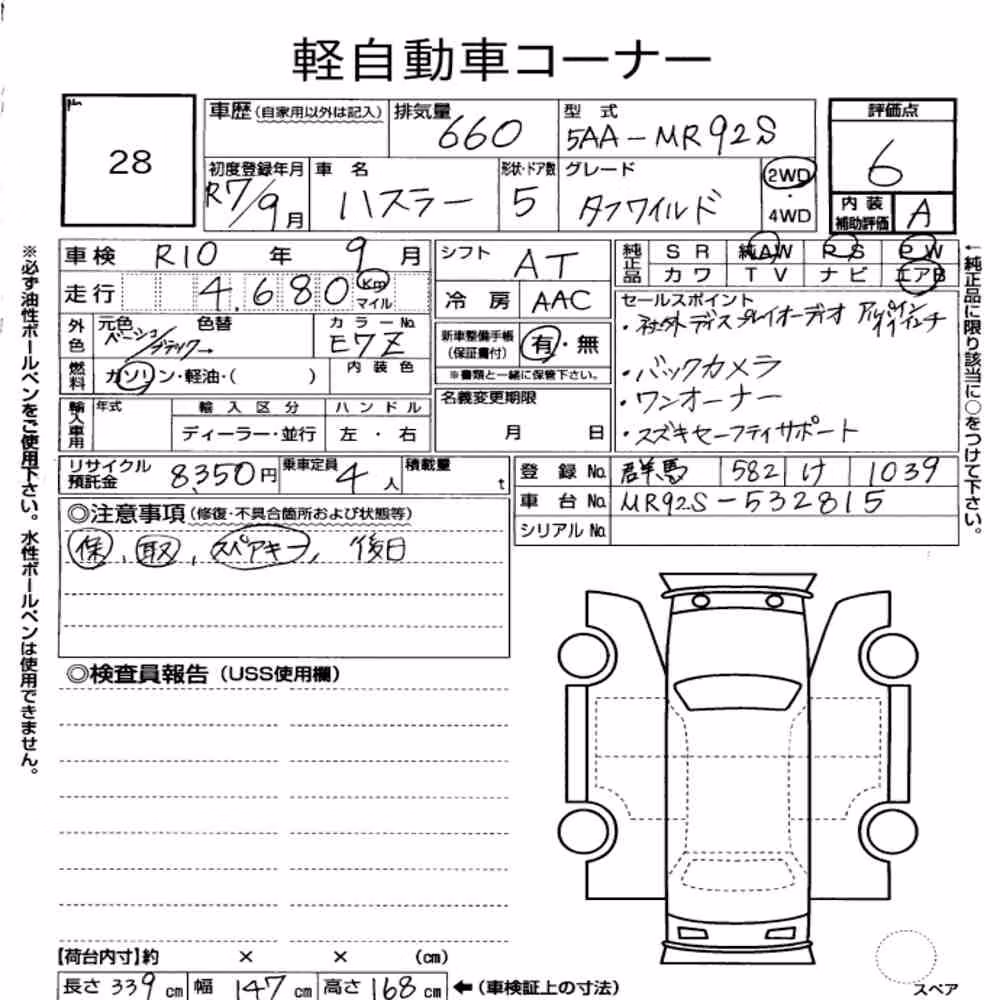 軽自動車コーナー
28
車歴(自家用以外は記入)
排気量 660
型式 5AA-MR92S
評価点 6
初度登録年月 R7/9月
車名 ハスラー
形状・ドア数 5
グレード タフワイルド
2WD・4WD
内装補助評価 A
車検 R10年 9月
シフト AT
純正品 SR 純AW PS PW
カワ TV ナビ エアB
走行 4,680 Km マイル
冷房 AAC
セールスポイント
・社外ディスプレイオーディオ アルパイン
外色 元色 ベージュ/ブラック 色替
カラーNo. E7Z
新車整備手帳(保証書付) 有・無
※書類と一緒に保管下さい。
・バックカメラ
燃料 ガソリン・軽油・( )
内装色
名義変更期限 月 日
・ワンオーナー
輸入車用 年式 輸入区分 ハンドル
ディーラー・並行 左・右
・スズキセーフティサポート
リサイクル預託金 8,350円
乗車定員 4人
積載量 t
登録No. 群馬 582 け 1039
車台No. MR92S-532815
シリアルNo.
◎注意事項(修復・不具合箇所および状態等)
保、取、スペアキー、後日
◎検査員報告(USS使用欄)
【荷台内寸】約 × × (cm)
長さ 339cm 幅 147cm 高さ 168cm ←(車検証上の寸法)
スペア
※必ず油性ボールペンをご使用下さい。水性ボールペンは使用できません。
←純正品に限り該当に○をつけて下さい。